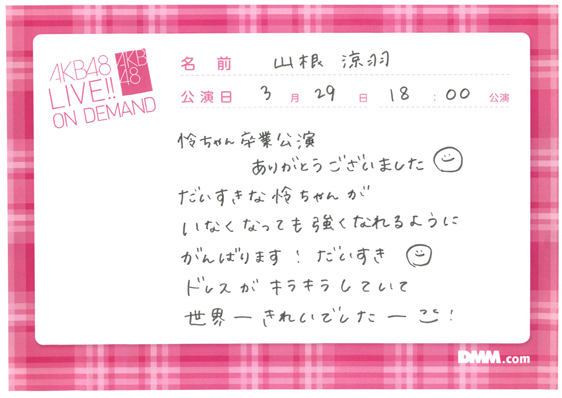 AKB48
LIVE!!
ON DEMAND
AKB
48
名前 山根 涼羽
公演日 3月29日 18:00公演
怜ちゃん卒業公演
ありがとうございました
だいすきな怜ちゃんが
いなくなっても強くなれるように
がんばります! だいすき
ドレスがキラキラしていて
世界一きれいでしたー!
DMM.com